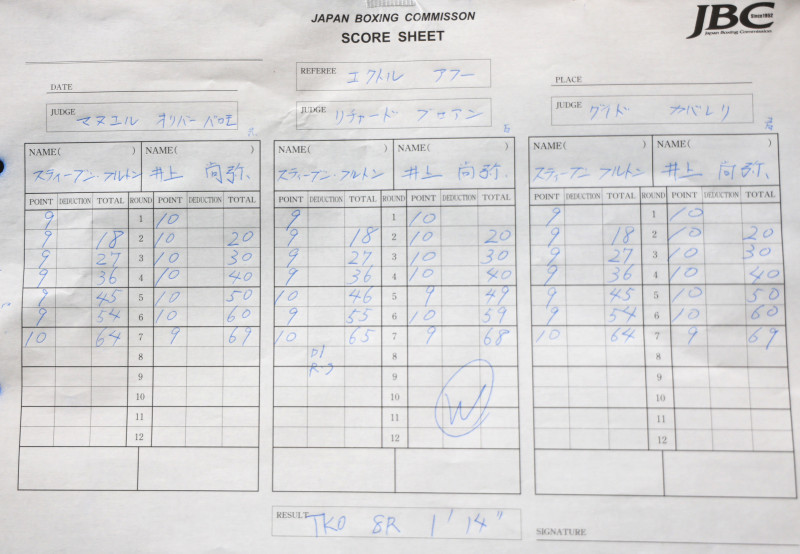 JAPAN BOXING COMMISSON
SCORE SHEET
JBC
Since1952
Japan Boxing Commission
DATE
REFEREE エクトル アフー
PLACE
JUDGE マヌエル オリバー パロモ
JUDGE リチャード ブロアン
JUDGE グイド カバレリ
NAME( ) NAME( ) NAME( ) NAME( ) NAME( ) NAME( )
スティーブン・フルトン 井上 尚弥 スティーブン・フルトン 井上 尚弥 スティーブン・フルトン 井上 尚弥
POINT DEDUCTION TOTAL ROUND POINT DEDUCTION TOTAL POINT DEDUCTION TOTAL ROUND POINT DEDUCTION TOTAL POINT DEDUCTION TOTAL ROUND POINT DEDUCTION TOTAL
9 1 10 9 1 10 9 1 10
9 18 2 10 20 9 18 2 10 20 9 18 2 10 20
9 27 3 10 30 9 27 3 10 30 9 27 3 10 30
9 36 4 10 40 9 36 4 10 40 9 36 4 10 40
9 45 5 10 50 10 46 5 9 49 9 45 5 10 50
9 54 6 10 60 9 55 6 10 59 9 54 6 10 60
10 64 7 9 69 10 65 7 9 68 10 64 7 9 69
8 8 8
9 9 9
10 10 W 10
11 11 11
12 12 12
RESULT TKO 8R 1'14"
SIGNATURE